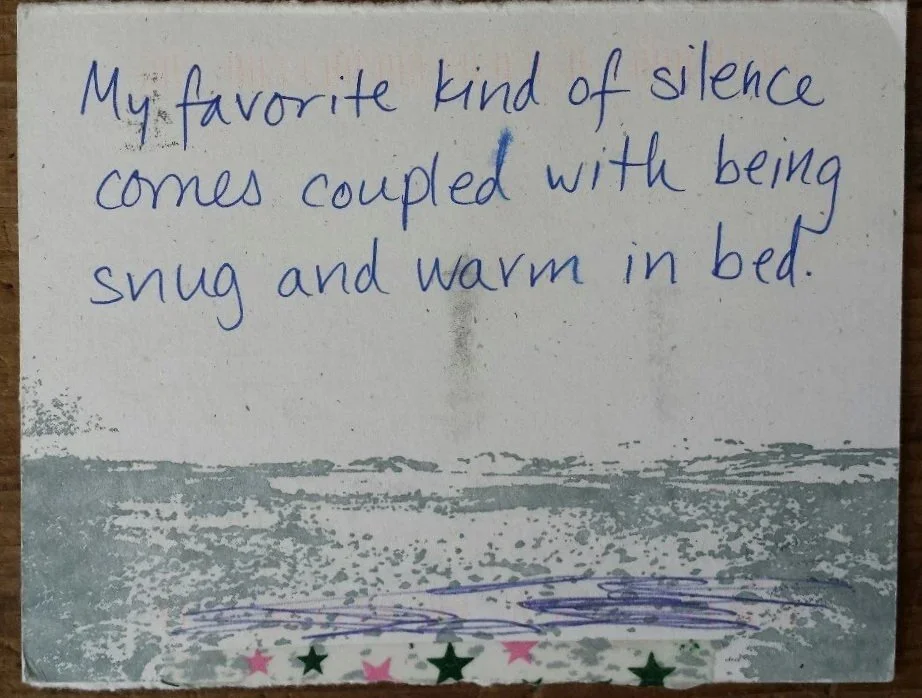 My favorite kind of silence
comes coupled with being
snug and warm in bed.